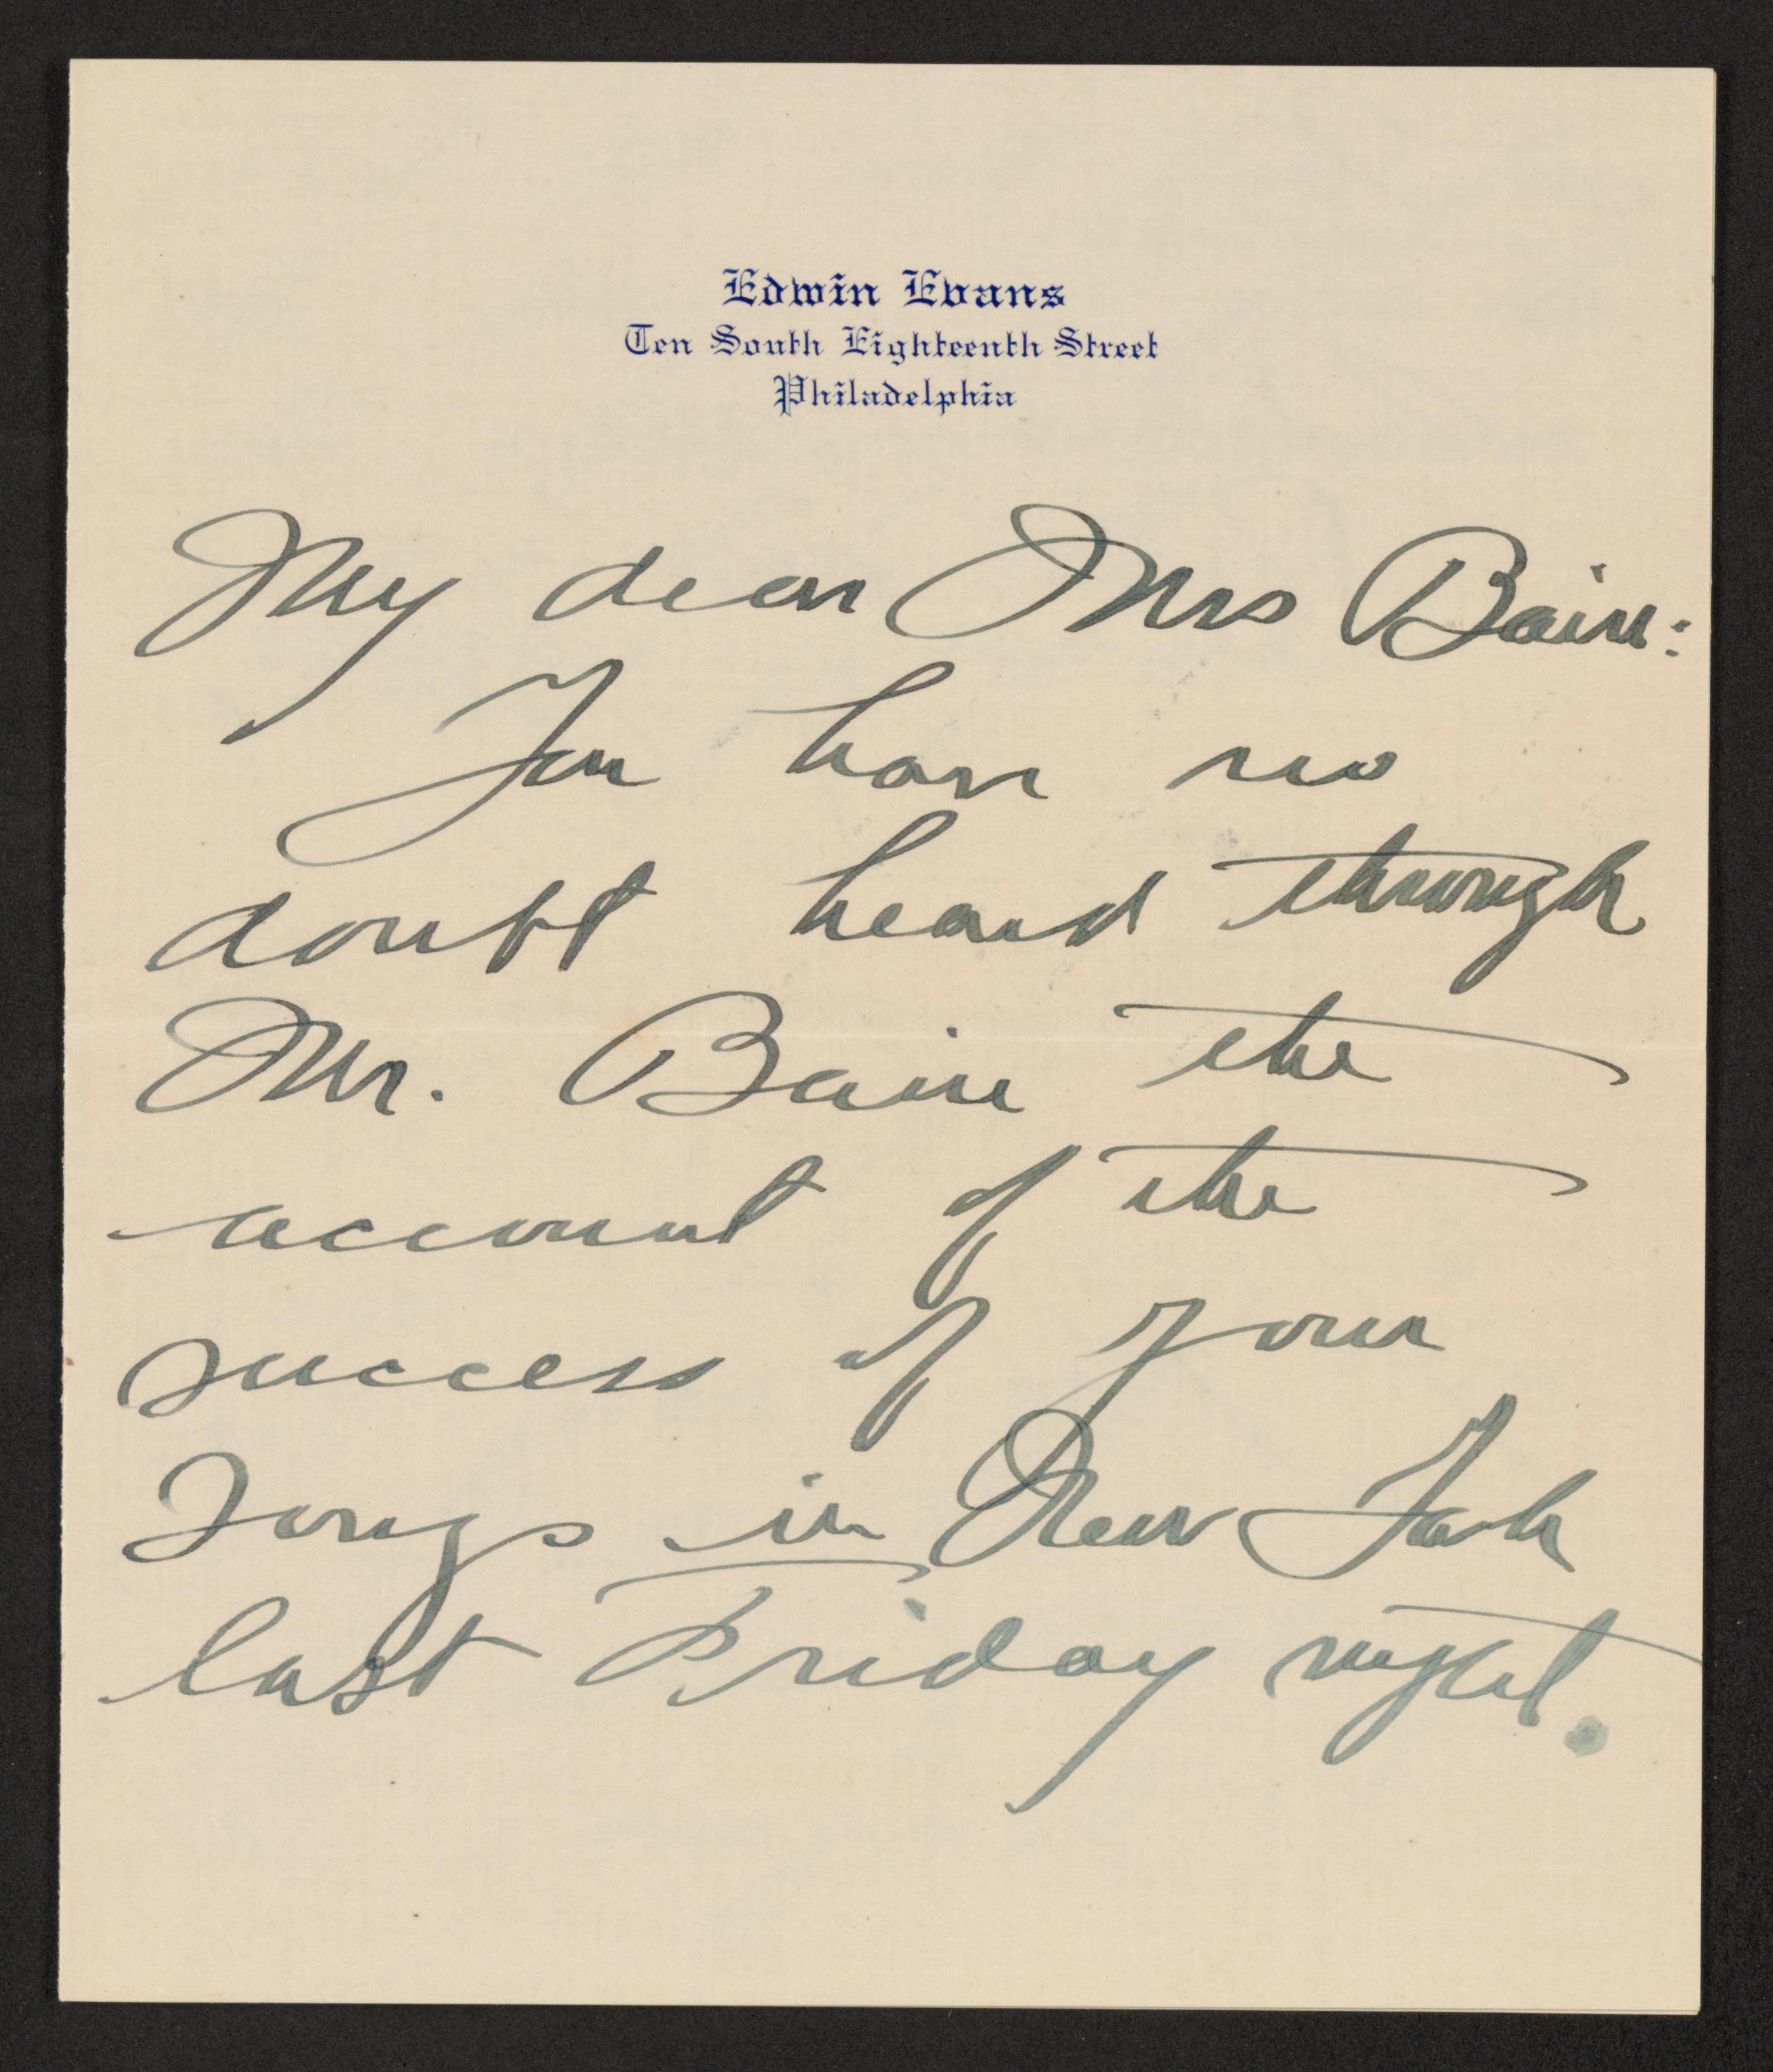 Edwin Evans
Ten South Eighteenth Street
Philadelphia
My dear Mrs Bain:
You have no
doubt heard through
Mr. Bain the
account of the
success of your
songs in New York
last Friday night.